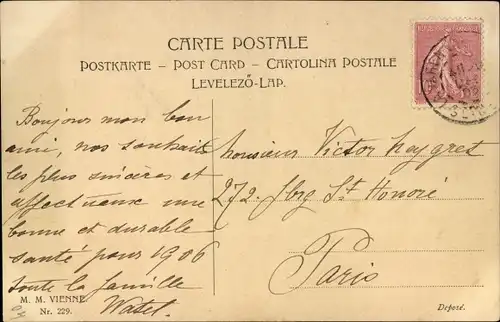 CARTE POSTALE
POSTKARTE – POST CARD – CARTOLINA POSTALE
LEVELEZŐ-LAP.
Bonjour mon bon
ami, nos souhaits
les plus sincères et
affectueux une
bonne et durable
santé pour 1906
toute la famille
Watel.
Monsieur Victor Maygret
272. fbrg St Honoré
Paris
M. M. VIENNE
Nr. 229.
Deposé.